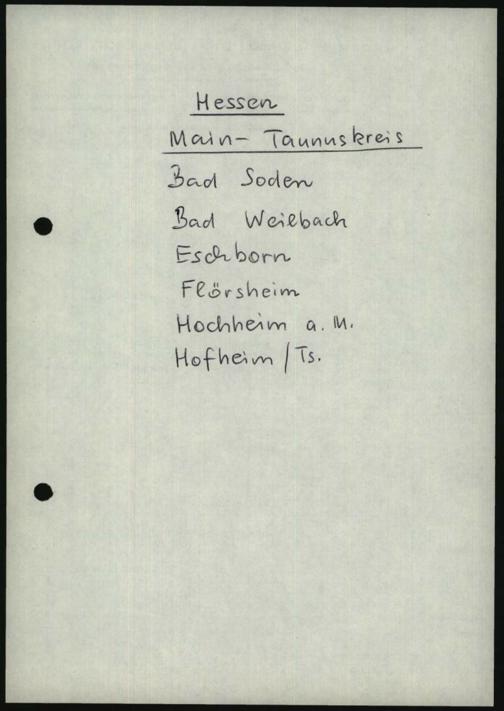 Hessen
Main- Taunuskreis
Bad Soden
Bad Weilbach
Eschborn
Flörsheim
Hochheim a. M.
Hofheim / Ts.